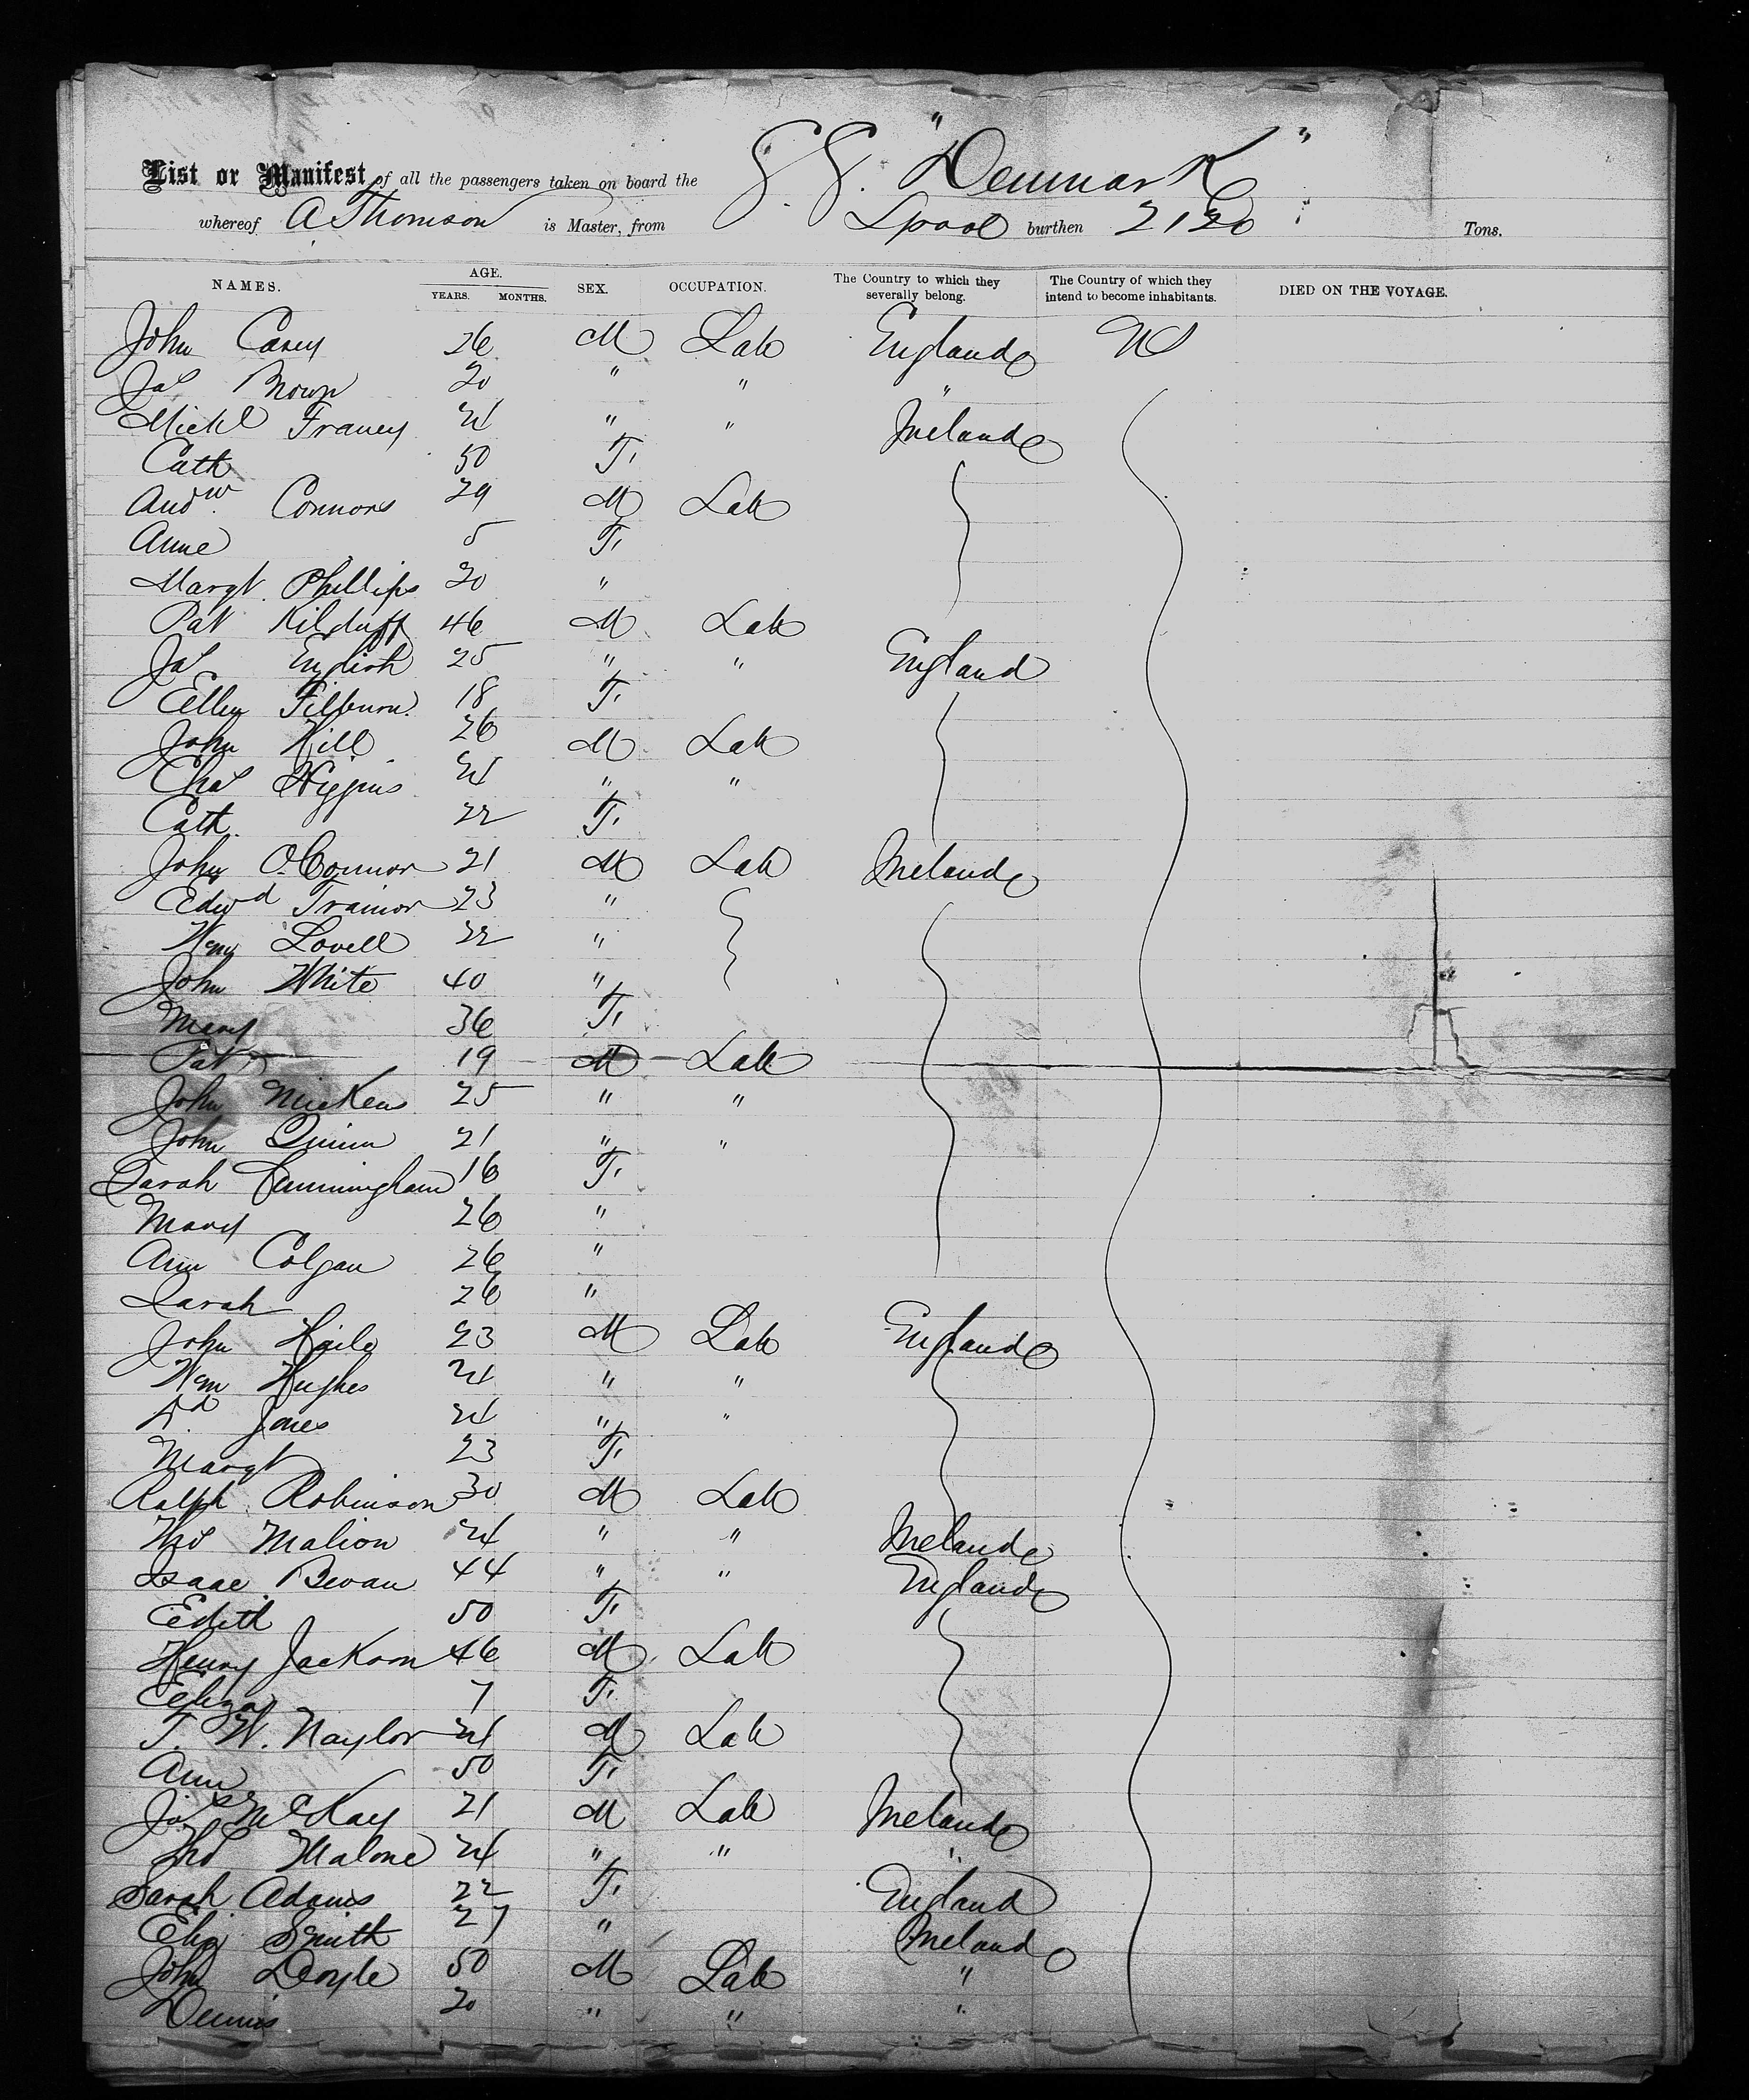 S.S. "Denmark"
List or Manifest of all the passengers taken on board the
whereof A Thomson is Master, from Lpool burthen 2120 Tons.
NAMES. AGE. YEARS. MONTHS. SEX. OCCUPATION. The Country to which they severally belong. The Country of which they intend to become inhabitants. DIED ON THE VOYAGE.
John Casey 26 M Lab England US
Jas Brown 20 " " "
Michl Franey 24 " " Ireland
Cath 50 F
Andw. Connors 29 M Lab
Anne 5 F
Margt. Phillips 20 "
Pat Kilduff 46 M Lab
Jas English 25 " " England
Elley Filburn 18 F
John Hill 26 M Lab
Chas Higgins 24 " "
Cath. 22 F
John O'Connor 21 M Lab Ireland
Edwd Trainor 23 "
Wm Lovell 22 "
John White 40 "
Mary 36 F
Pat 19 M Lab
John Mickens 25 " "
John Quinn 21 " "
Sarah Cunningham 16 F
Mary 26 "
Ann Colgan 26 "
Sarah 26 "
John Haile 23 M Lab England
Wm Hughes 24 " "
Jones 24 " "
Margt 23 F
Ralph Robinson 30 M Lab
Thos Malion 24 " " Ireland
Isaac Bevan 44 " " England
Edith 50 F
Henry Jackson 46 M Lab
Eliza 7 F
T. W. Naylor 24 M Lab
Ann 50 F
Jas McKay 21 M Lab Ireland
Thos Malone 24 " " "
Sarah Adams 22 F England
Eliz Smith 27 " Ireland
John Doyle 50 M Lab "
Dennis 20 " " "